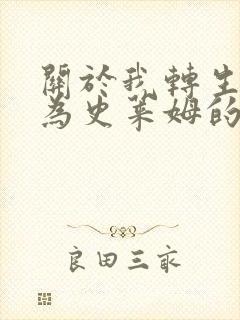 關於我轉生
為史萊姆的
良田三畝